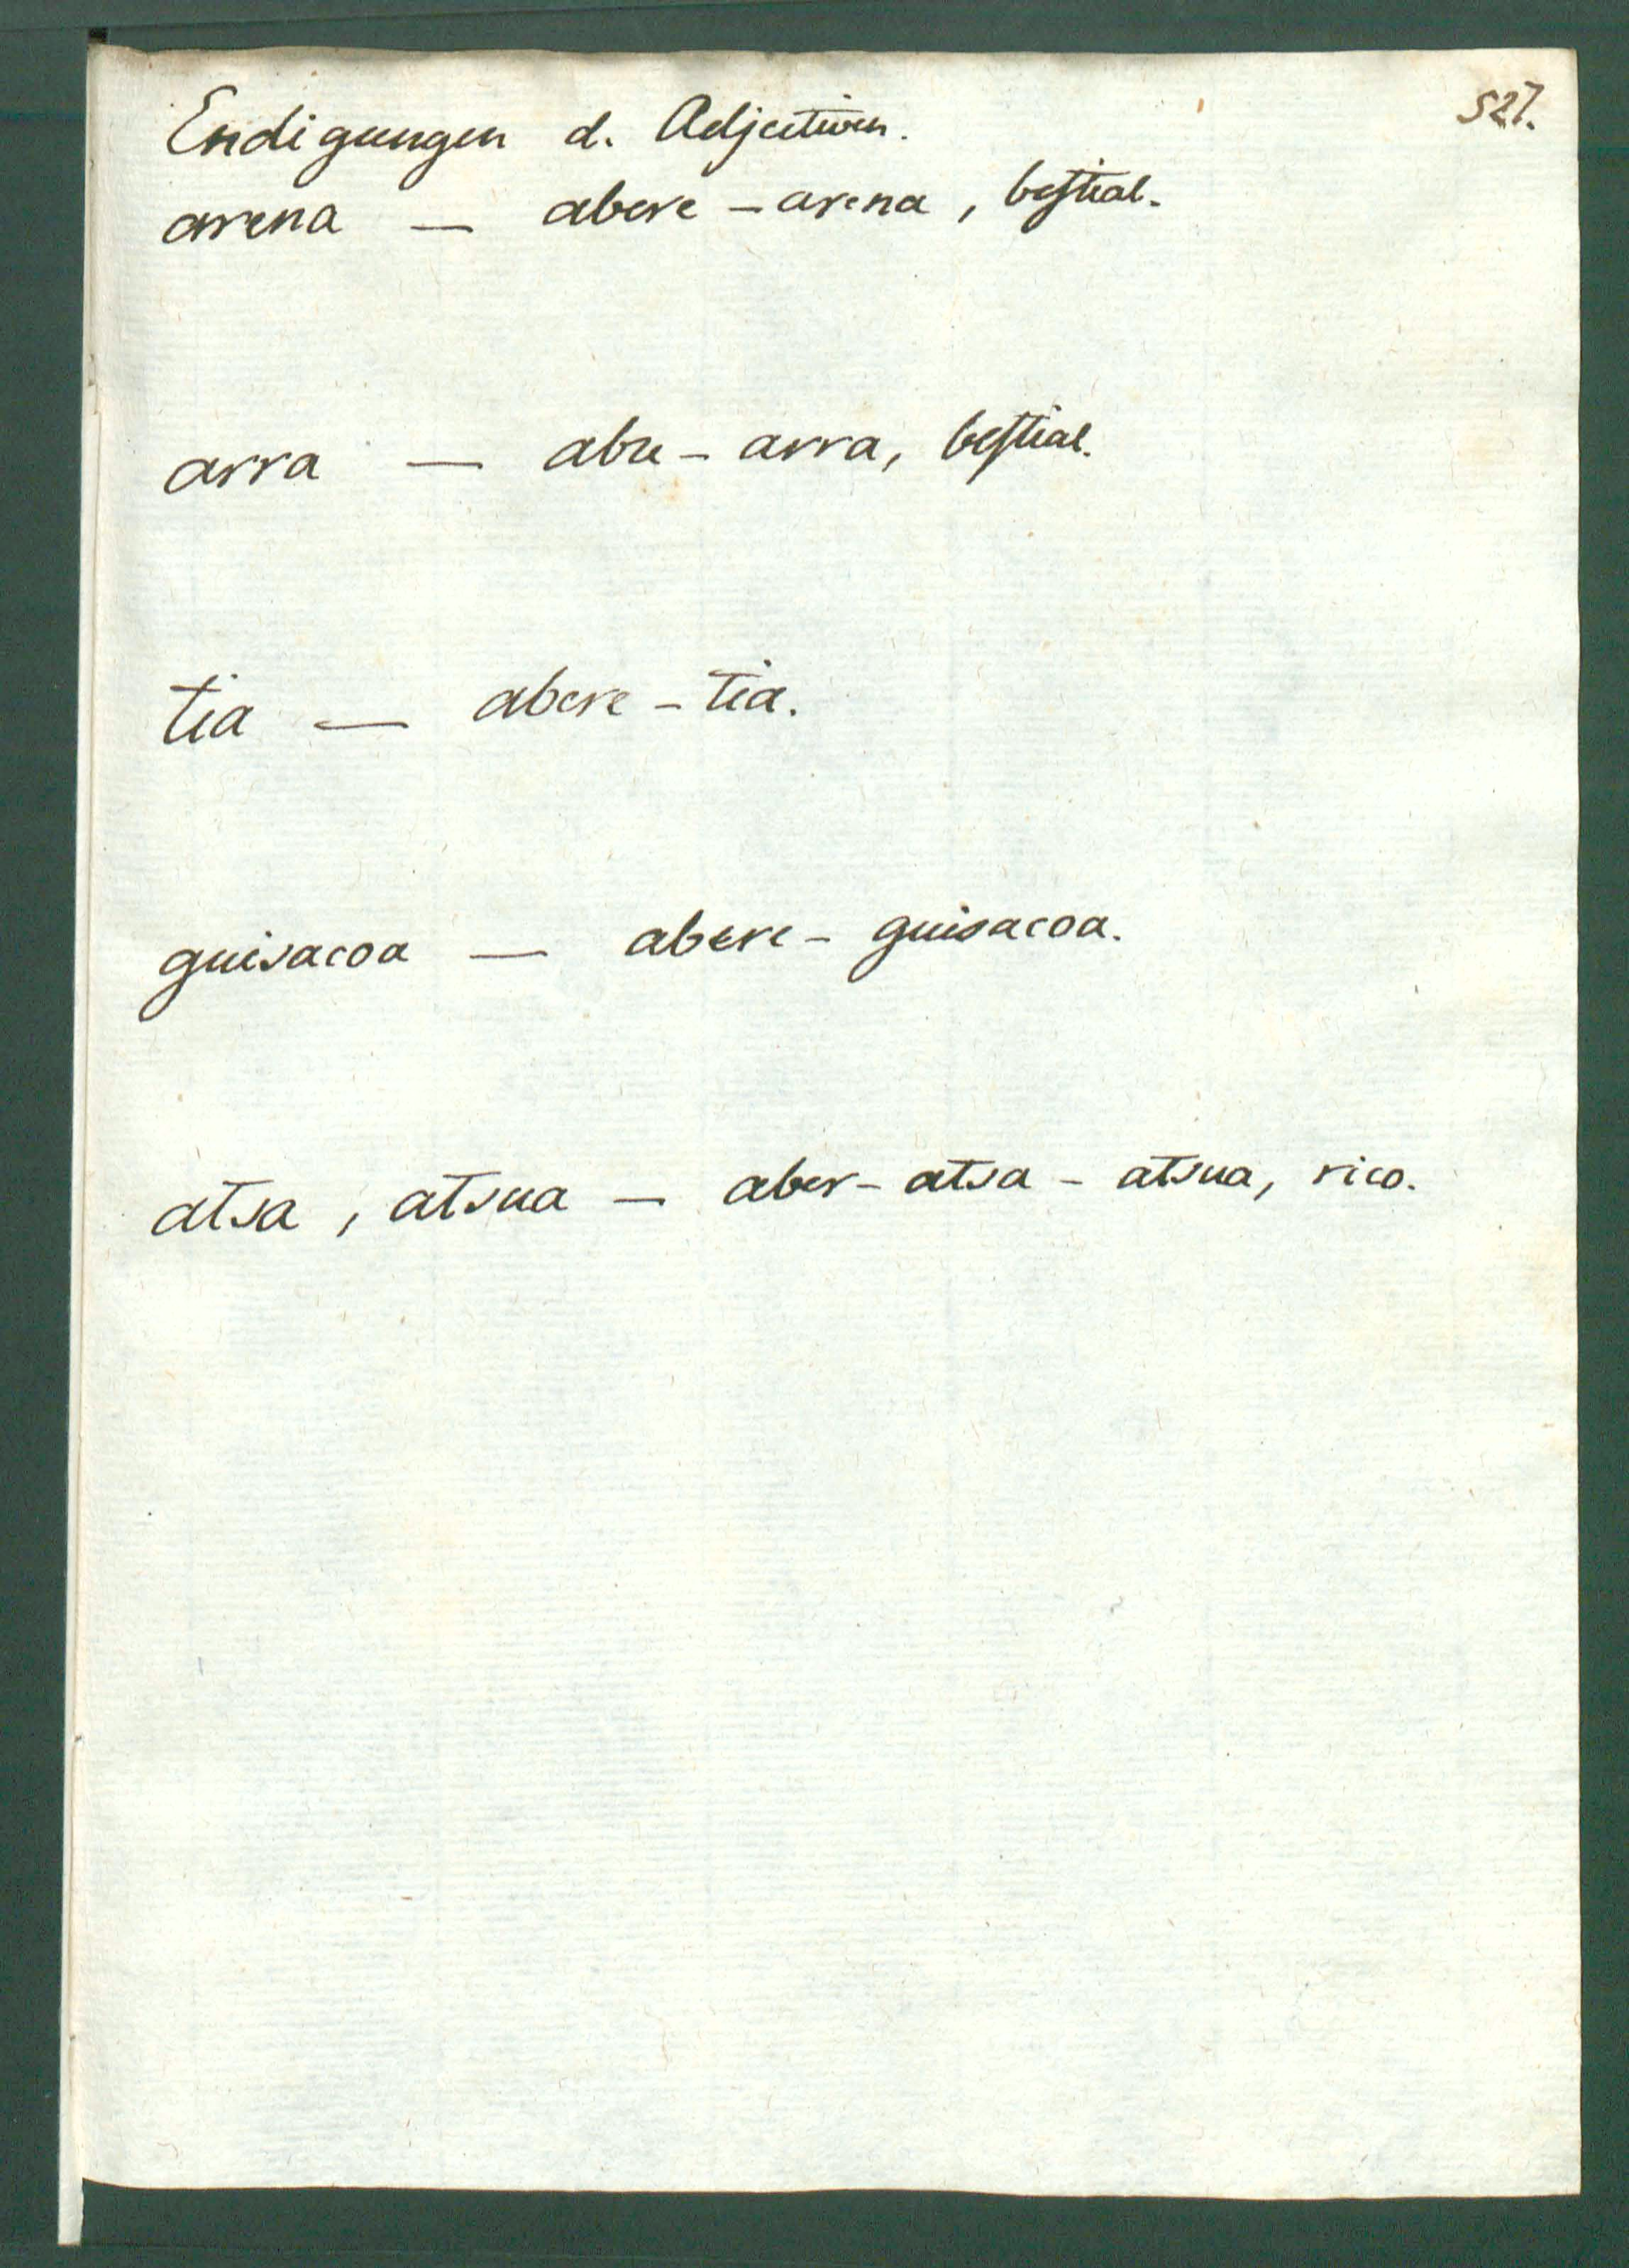 527.
Endigungen d. Adjectiven.
arena — abere - arena, bestial.
arra — abre - arra, bestial.
tia — abere - tia.
guisacoa — abere - guisacoa.
atsa, atsua — aber - atsa - atsua, rico.